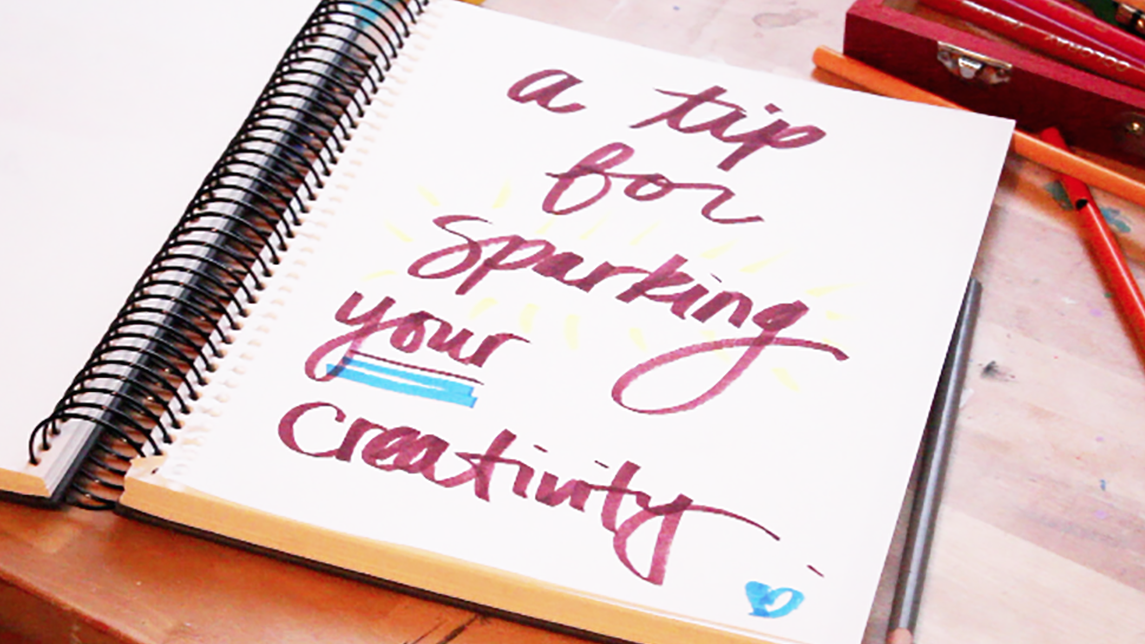 a tip
for
sparking
your
creativity